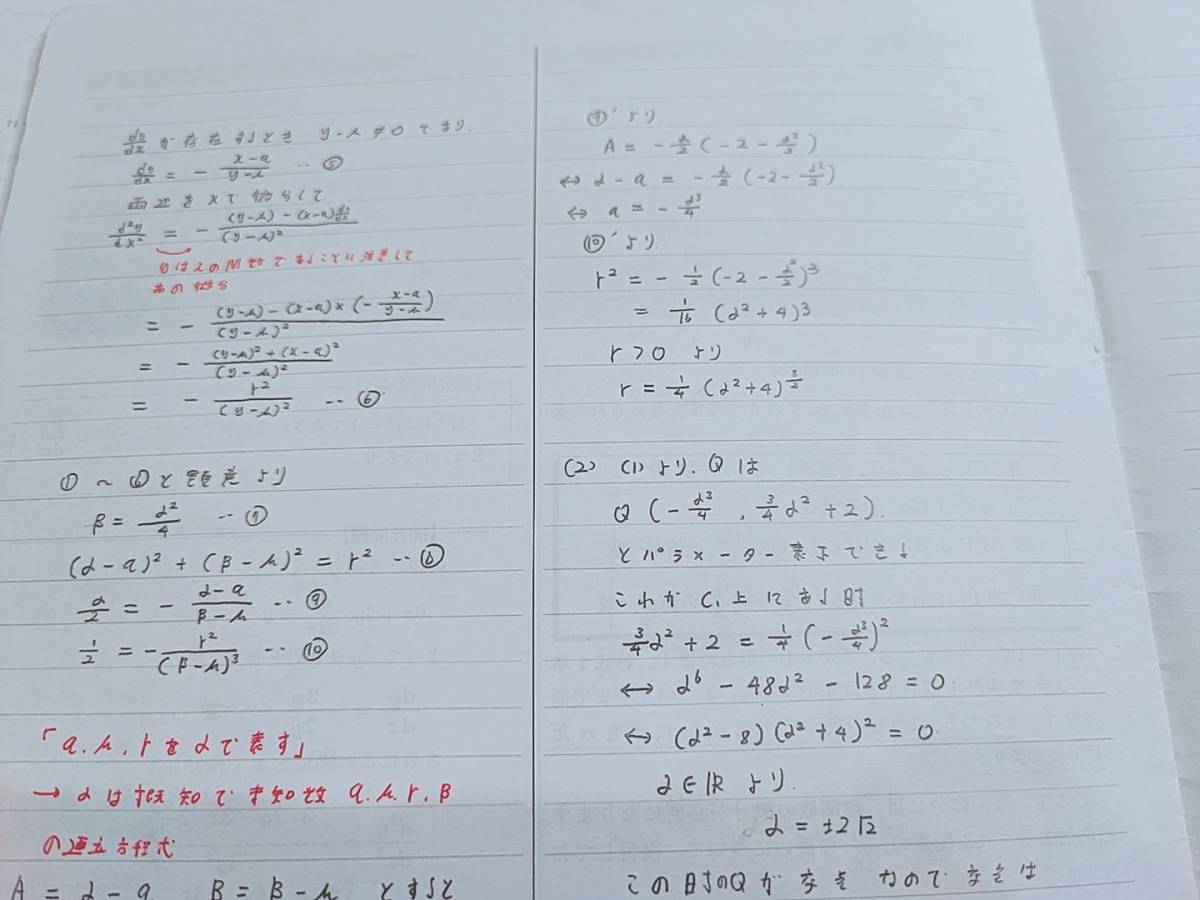 dy/dx が存在するとき y-b ≠ 0 であり.
dy/dx = - (x-a)/(y-b) … ⑤
両辺を x で微分して
d²y/dx² = - ((y-b) - (x-a)dy/dx)/(y-b)²
yはxの関数であることに注意して
商の微分
= - ((y-b) - (x-a)×(-(x-a)/(y-b)))/(y-b)²
= - ((y-b)² + (x-a)²)/(y-b)²
= - r²/(y-b)² … ⑥
① ~ ⑥ と題意より
β = α²/4 … ⑦
(α-a)² + (β-b)² = r² … ⑧
α/2 = - (α-a)/(β-b) … ⑨
1/2 = - r²/(β-b)³ … ⑩
「a.b.rをαで表す」
→ αは既知で未知数 a.b.r.β
の連立方程式
A = α-a B = β-b とすると
⑨´より
A = - α/2 (-2 - α²/2)
⇔ α-a = - α/2 (-2 - α²/2)
⇔ a = - α³/4
⑩´より
r² = - 1/2 (-2 - α²/2)³
= 1/16 (α²+4)³
r > 0 より
r = 1/4 (α²+4)^(3/2)
(2) (1)より. Qは
Q (- α³/4 , 3/4 α² + 2).
とパラメーター表示できる
これが C₁上にある時
3/4 α² + 2 = 1/4 (- α³/4)²
⇔ α⁶ - 48α² - 128 = 0
⇔ (α²-8)(α²+4)² = 0
α∈ℝ より.
α = ±2√2
この時のQが交点なので交点は